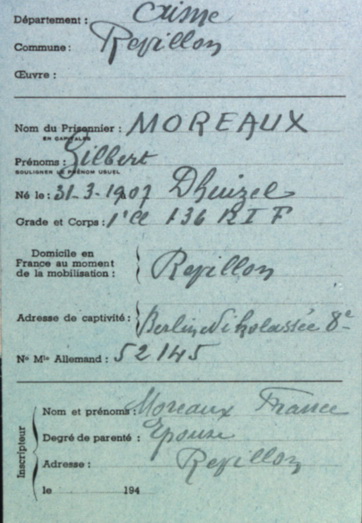 Département : Aisne
Commune : Revillon
Œuvre :
Nom du Prisonnier : MOREAUX
EN CAPITALES
Prénoms : Gilbert
SOULIGNER LE PRÉNOM USUEL
Né le : 31-3-1907 Dhuizel
Grade et Corps : 1e Cl 136 R I F
Domicile en
France au moment
de la mobilisation : Revillon
Adresse de captivité : Berlin Nikolassée 8e
Nº Mle Allemand : 52145
Inscripteur
Nom et prénoms : Moreaux France
Degré de parenté : Epouse
Adresse : Revillon
le 194